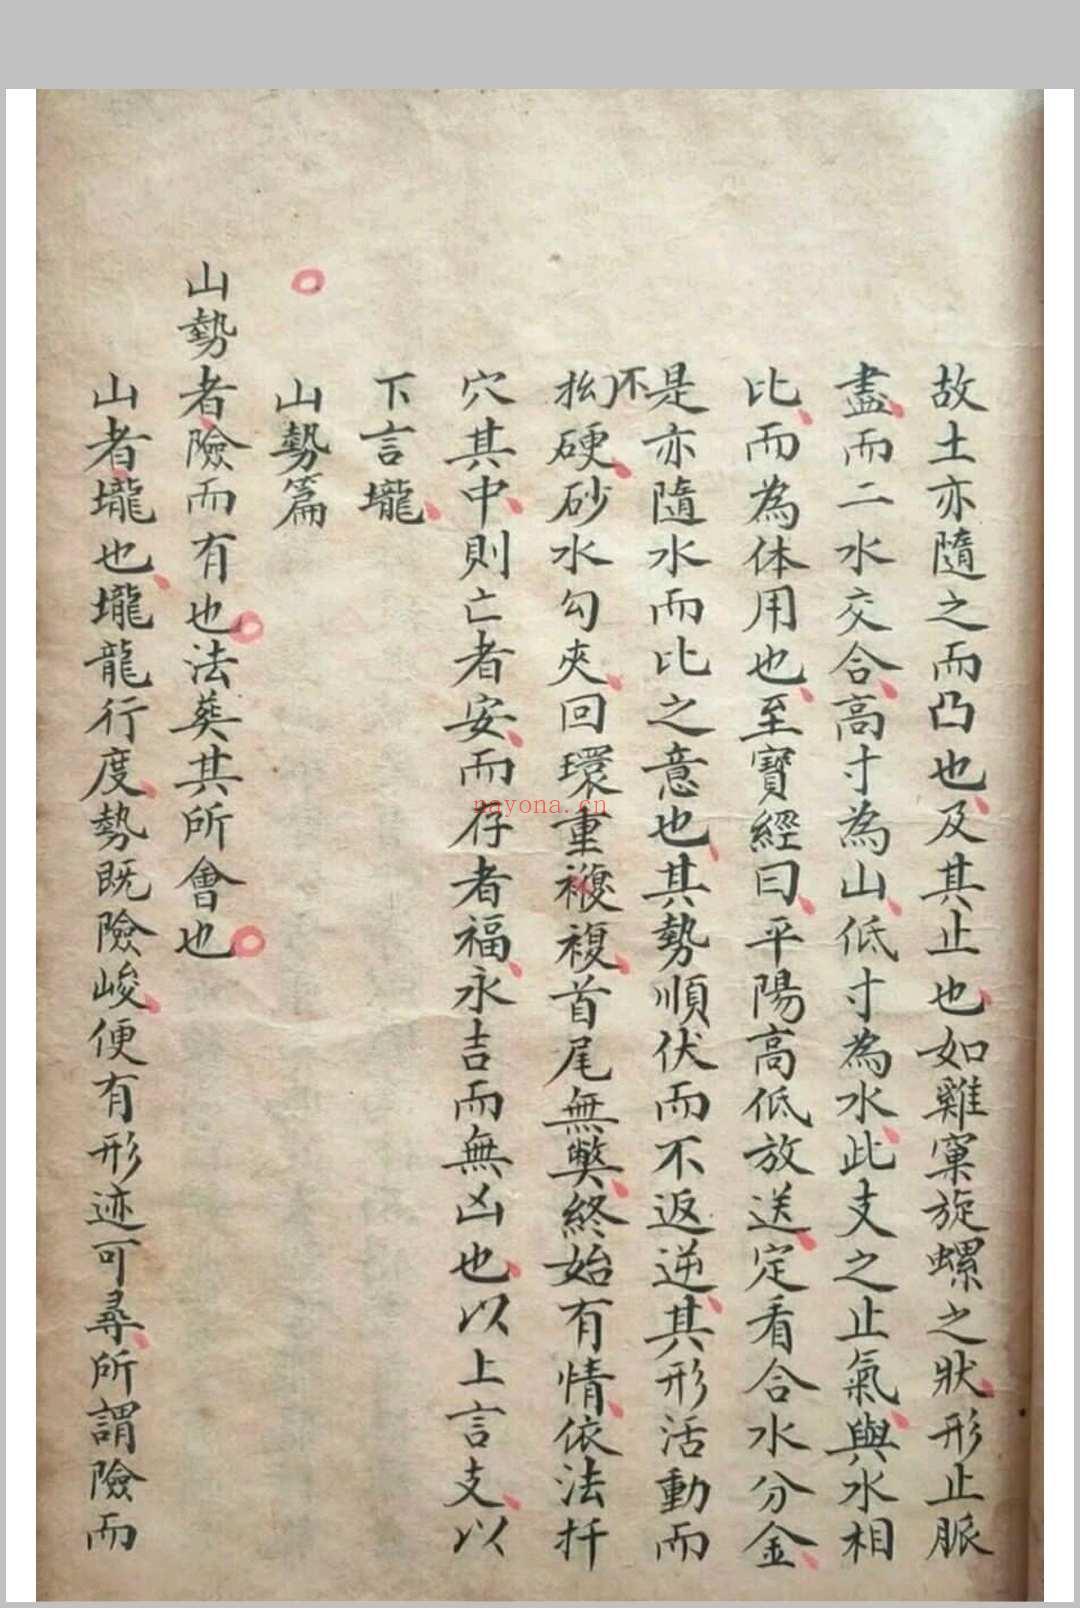 故土亦隨之而凸也及其止也如雞窠旋螺之狀形止脈
盡而二水交合高寸為山低寸為水此支之止氣與水相
比而為体用也至寶經曰平陽高低放送定看合水分金
是亦隨水而比之意也其勢順伏而不返逆其形活動而
不拋硬砂水勾夾回環重複複首尾無獘終始有情依法扦
穴其中則亡者安而存者福永吉而無凶也以上言支以
下言壠
山勢篇
山勢者險而有也法葬其所會也
山者壠也壠龍行度勢既險峻便有形迹可尋所謂險而
nayona.cn